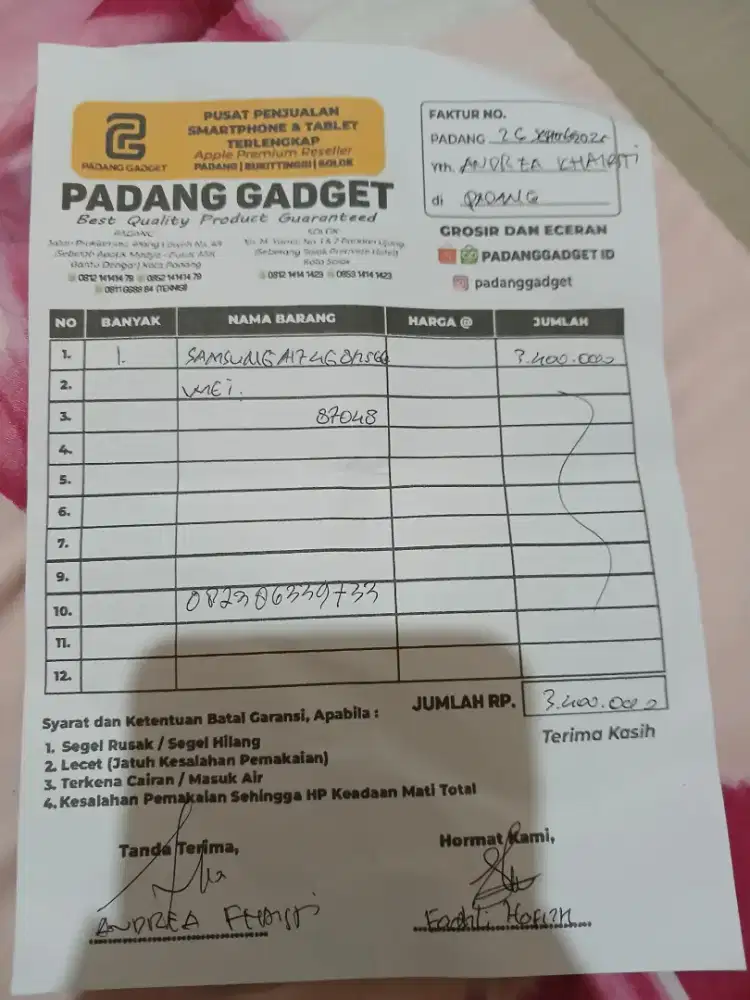 PUSAT PENJUALAN
SMARTPHONE & TABLET
TERLENGKAP
Apple Premium Reseller
PADANG | BUKITTINGGI | SOLOK
PADANG GADGET
PADANG GADGET
Best Quality Product Guaranteed
PADANG
SOLOK
0812 141414 79 0852 141414 79
0811 6688 84 (TEKNISI)
Kota Solok
0812 1414 1423 0853 1414 1423
FAKTUR NO.
PADANG 26
Yth. ANDREA
di PADANG
GROSIR DAN ECERAN
PADANGGADGET ID
padanggadget
NO BANYAK NAMA BARANG HARGA @ JUMLAH
1. 1. SAMSUNG A17 4G 8/256 3.400.000
2.
3. 87048
4.
5.
6.
7.
9.
10. 082386339733
11.
12.
JUMLAH RP. 3.400.000
Terima Kasih
Syarat dan Ketentuan Batal Garansi, Apabila :
1. Segel Rusak / Segel Hilang
2. Lecet (Jatuh Kesalahan Pemakaian)
3. Terkena Cairan / Masuk Air
4. Kesalahan Pemakaian Sehingga HP Keadaan Mati Total
Tanda Terima,
Hormat Kami,
ANDREA